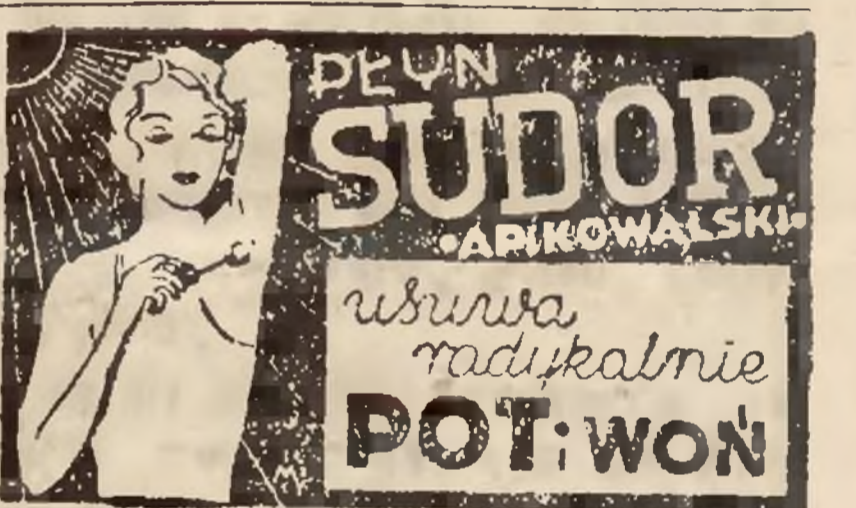 PŁYN
SUDOR
•AP.KOWALSKI•
usuwa
radykalnie
POT i WOŃ